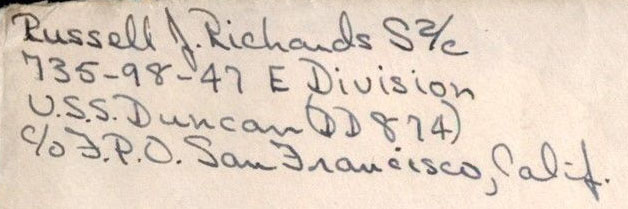 Russell J. Richards S2/c
735-98-47 E Division
U.S.S. Duncan (DD874)
c/o F.P.O. San Francisco, Calif.